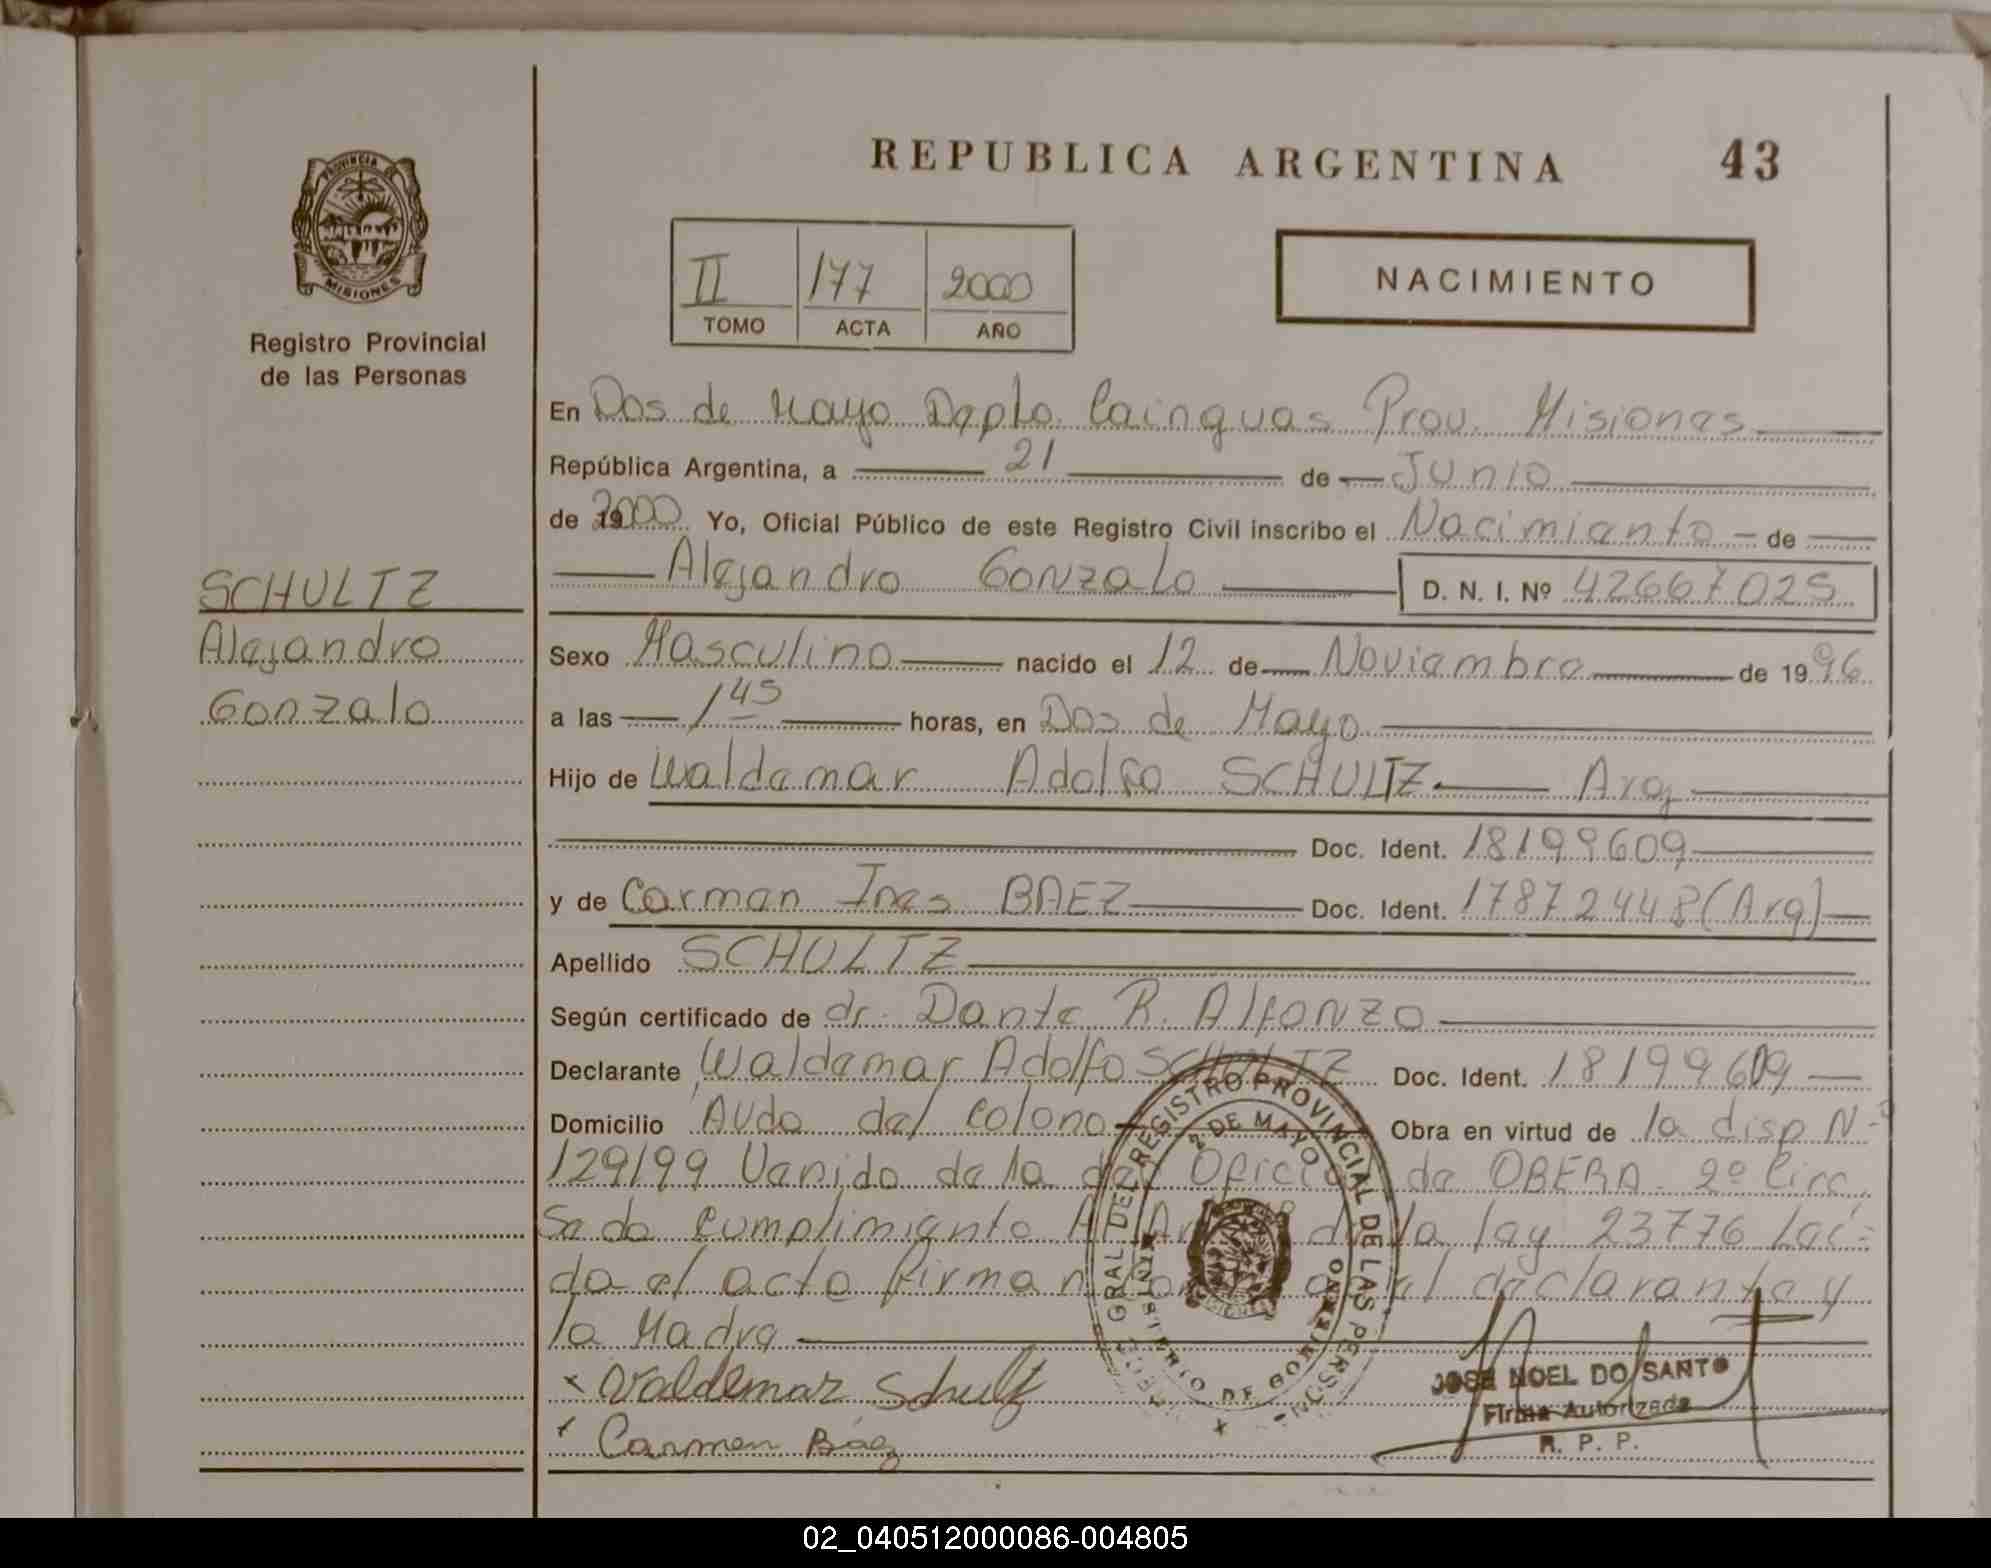 REPUBLICA ARGENTINA 43
PROVINCIA DE
MISIONES
Registro Provincial
de las Personas
II 177 2000
TOMO ACTA AÑO
NACIMIENTO
SCHULTZ
Alejandro
Gonzalo
En Dos de Mayo Depto. Cainguas Prov. Misiones
República Argentina, a 21 de Junio
de 2000 Yo, Oficial Público de este Registro Civil inscribo el Nacimiento de
Alejandro Gonzalo D. N. I. Nº 42667025
Sexo Masculino nacido el 12 de Noviembre de 1996
a las 1 45 horas, en Dos de Mayo
Hijo de Waldemar Adolfo SCHULTZ Arg
Doc. Ident. 18199609
y de Carmen Ines BAEZ Doc. Ident. 17872448 (Arg)
Apellido SCHULTZ
Según certificado de dr. Dante R. Alfonzo
Declarante Waldemar Adolfo SCHULTZ Doc. Ident. 18199609
Domicilio Avda del Colono Obra en virtud de la disp Nº
129/99 Venido de la de OBERA 2º Circ.
Se da cumplimiento Al de la ley 23776 Leí-
da el acta firman el declarante y
la Madre
x Valdemar Schultz
x Carmen Báez
REGISTRO PROVINCIAL DE LAS PERSONAS
2 DE MAYO
MINISTERIO DE GOBIERNO
JOSE NOEL DO SANTO
Firma Autorizada
R. P. P.
02_040512000086-004805